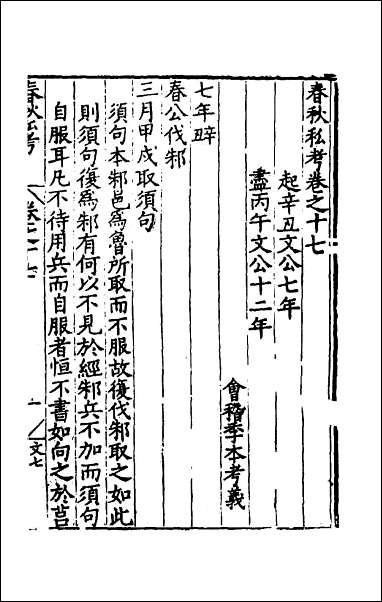 春秋私考卷之十七
起辛丑文公七年
盡丙午文公十二年
會稽季本考義
七年辛丑
春公伐邾
三月甲戍取須句
須句本邾邑爲魯所取而不服故復伐邾取之如此
則須句復爲邾有何以不見於經邾兵不加而須句
自服耳凡不待用兵而自服者恒不書如向之於莒
春秋私考
一
文七